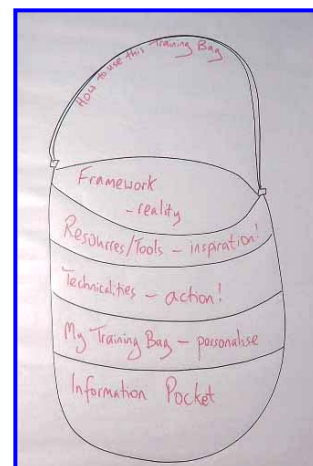 How to use this Training Bag
Framework
- reality
Resources/Tools - inspiration!
Technicalities - action!
My Training Bag - personalise
Information Pocket